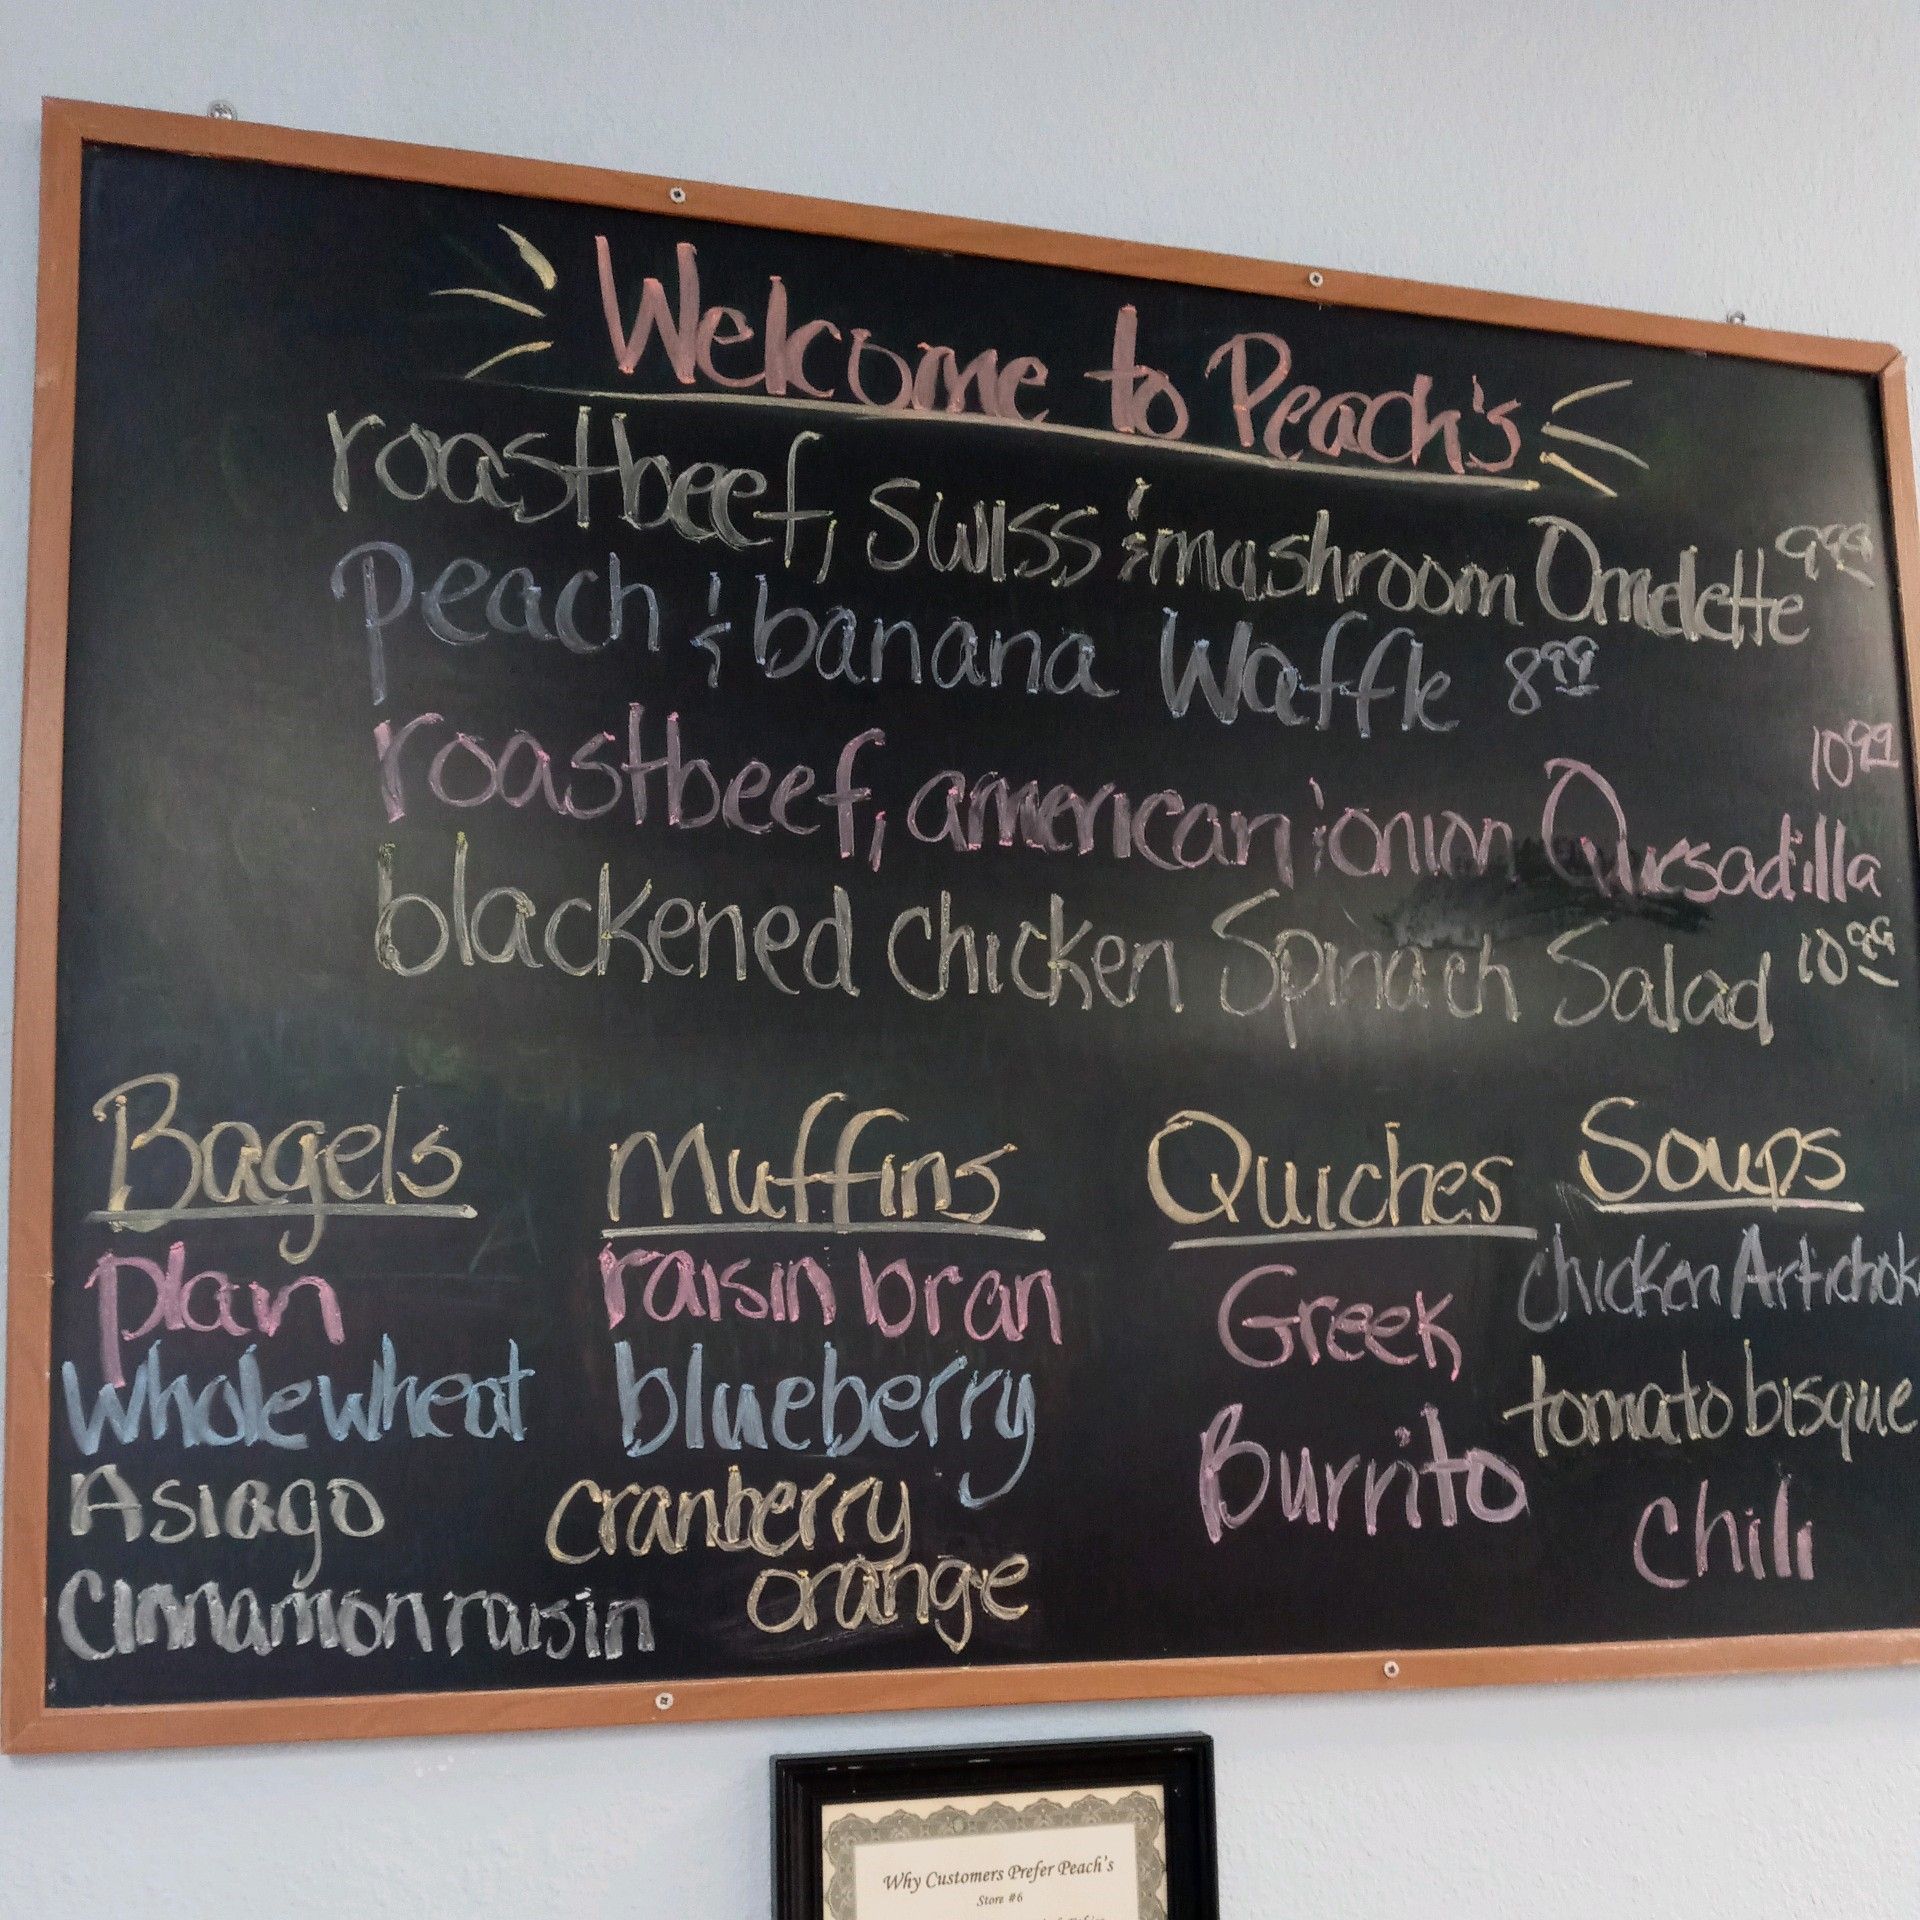 Welcome to Peach's
roastbeef, swiss & mashroom Omelette 9.99
Peach & banana Waffle 8.99
roastbeef, american & onion Quesadilla 10.99
blackened chicken Spinach Salad 10.99
Bagels
plan
whole wheat
Asiago
Cinnamon raisin
Muffins
raisin bran
blueberry
cranberry
orange
Quiches
Greek
Burrito
Soups
chicken Artichok
tomato bisque
chili
Why Customers Prefer Peach's
Store #6